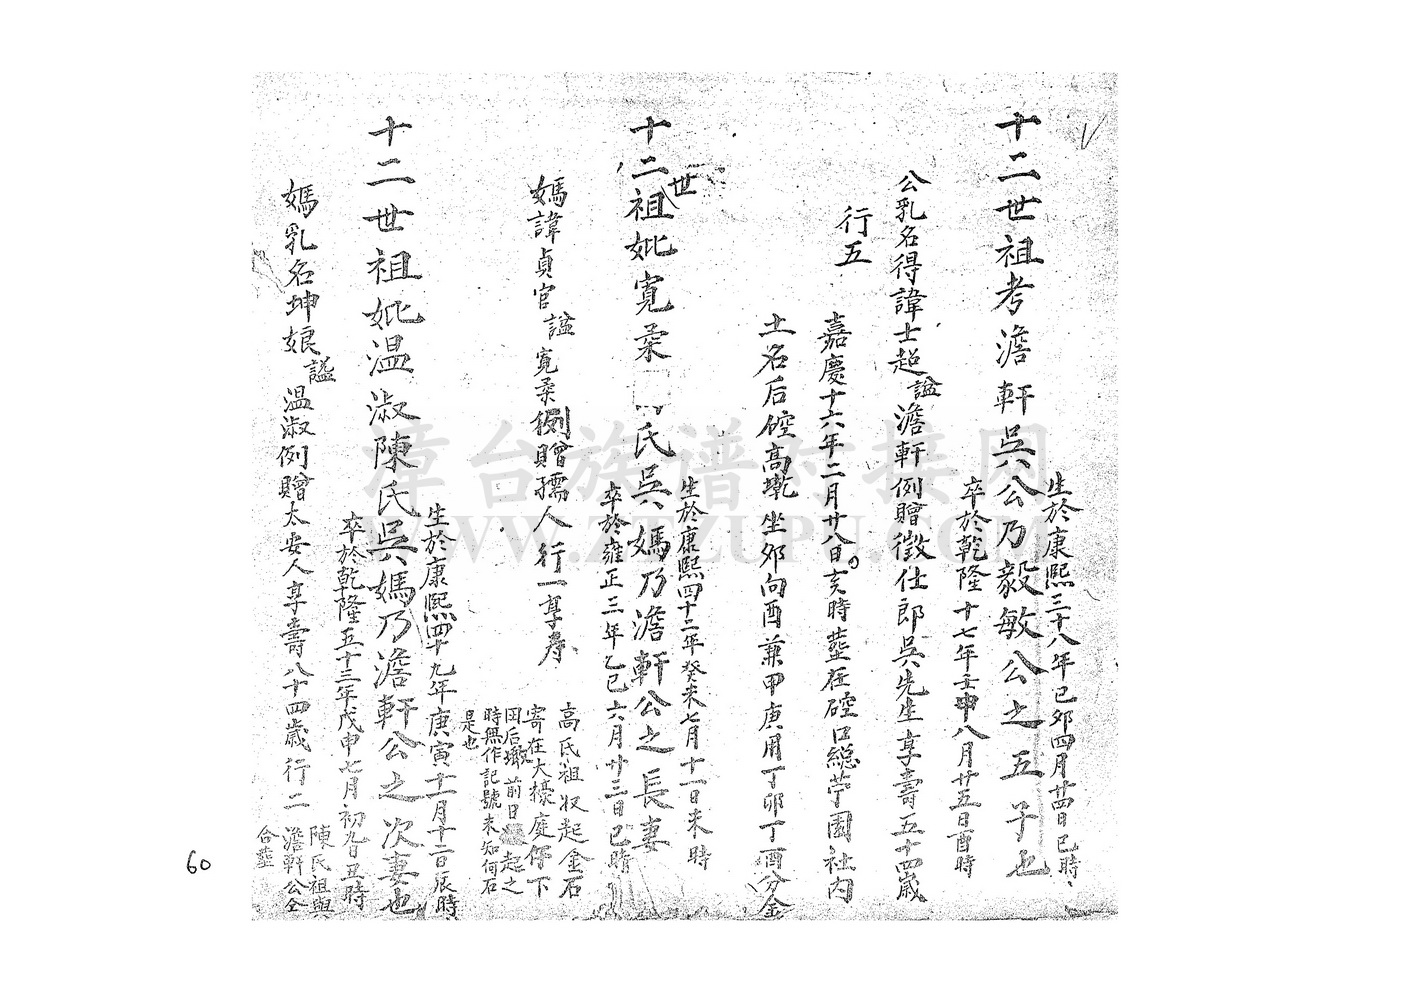 十二世祖考澹軒吳公乃毅敏公之五子也
生於康熙三十八年己卯四月廿四日巳時
卒於乾隆十七年壬申八月廿五日酉時
公乳名得諱士超諡澹軒例贈徵仕郎吳先生享壽五十四歲
行五
嘉慶十六年二月廿八日亥時塟在硿口總苧園社內
土名后硿高墘坐卯向酉兼甲庚用丁卯丁酉分金
十二世祖妣寬柔 氏吳媽乃澹軒公之長妻
生於康熙四十二年癸未七月十一日未時
卒於雍正三年乙巳六月廿三日巳時
媽諱貞官諡寬柔例贈孺人行一享寿
高氏祖収起金石
寄在大檺庭仔下
囝后墘前日 起之
時無作記號未知何石
是也
十二世祖妣温淑陳氏吳媽乃澹軒公之次妻也
生於康熙四十九年庚寅十一月十二日辰時
卒於乾隆五十三年戊申七月初九日丑時
媽乳名坤娘諡温淑例贈太安人享壽八十四歲行二
陳氏祖與
澹軒公仝
合塟
60
韋台族谱对接网
WWW.ZTZUPU.COM